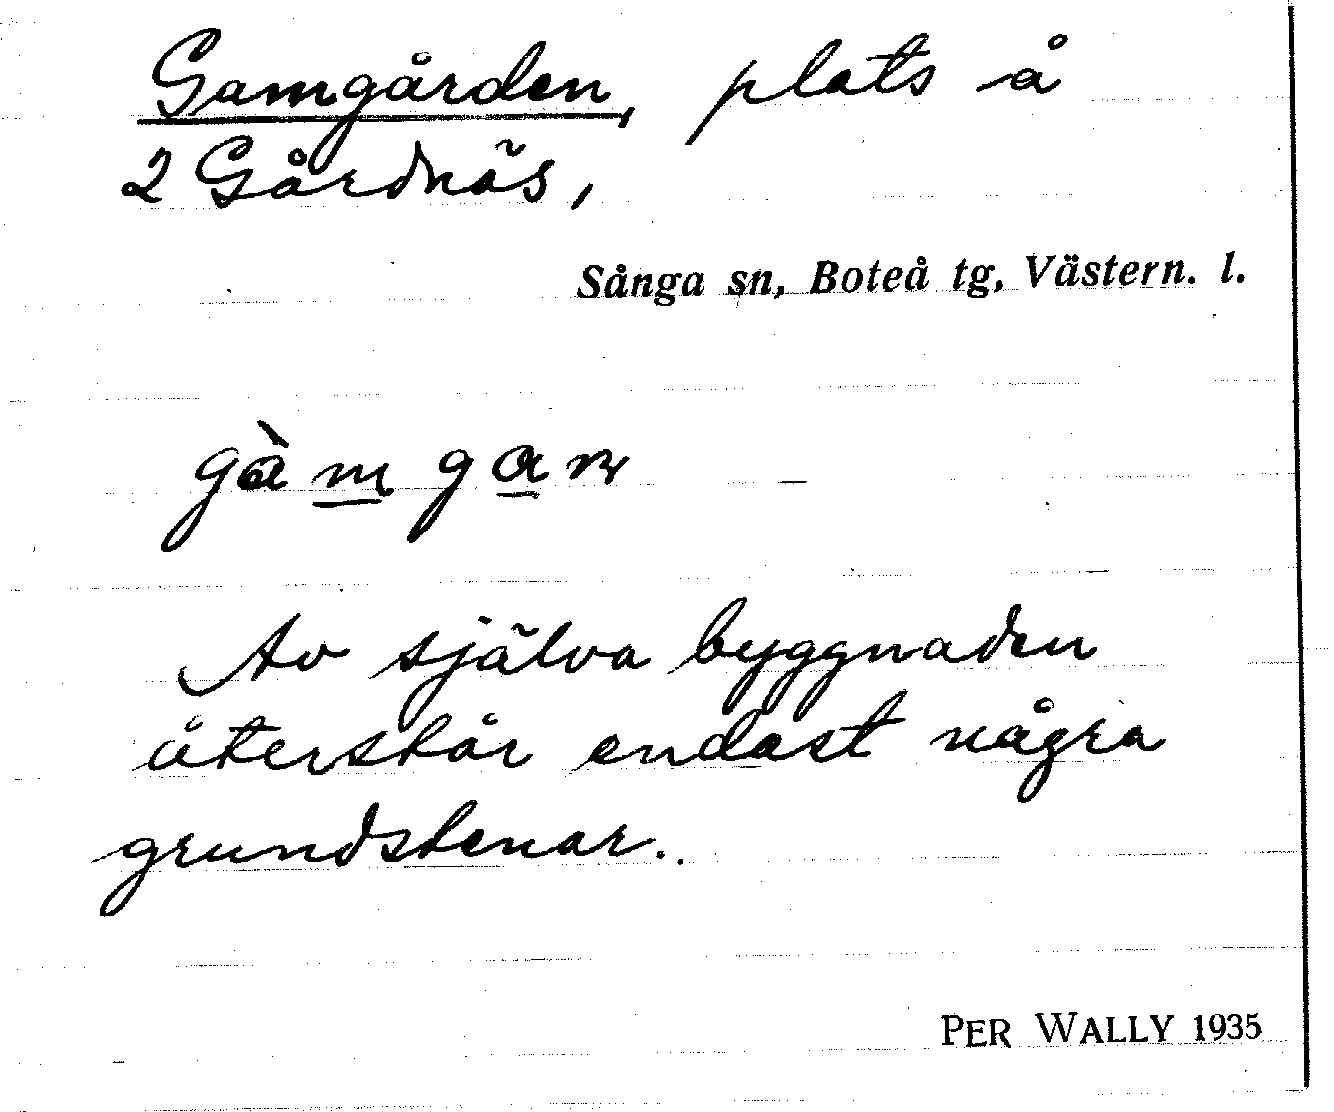 Gamgården, plats å
2 Gårdnäs,
Sånga sn, Boteå tg, Västern. l.
gàm̲ga̲ɴ
Av själva byggnaden
återstår endast några
grundstenar.
PER WALLY 1935